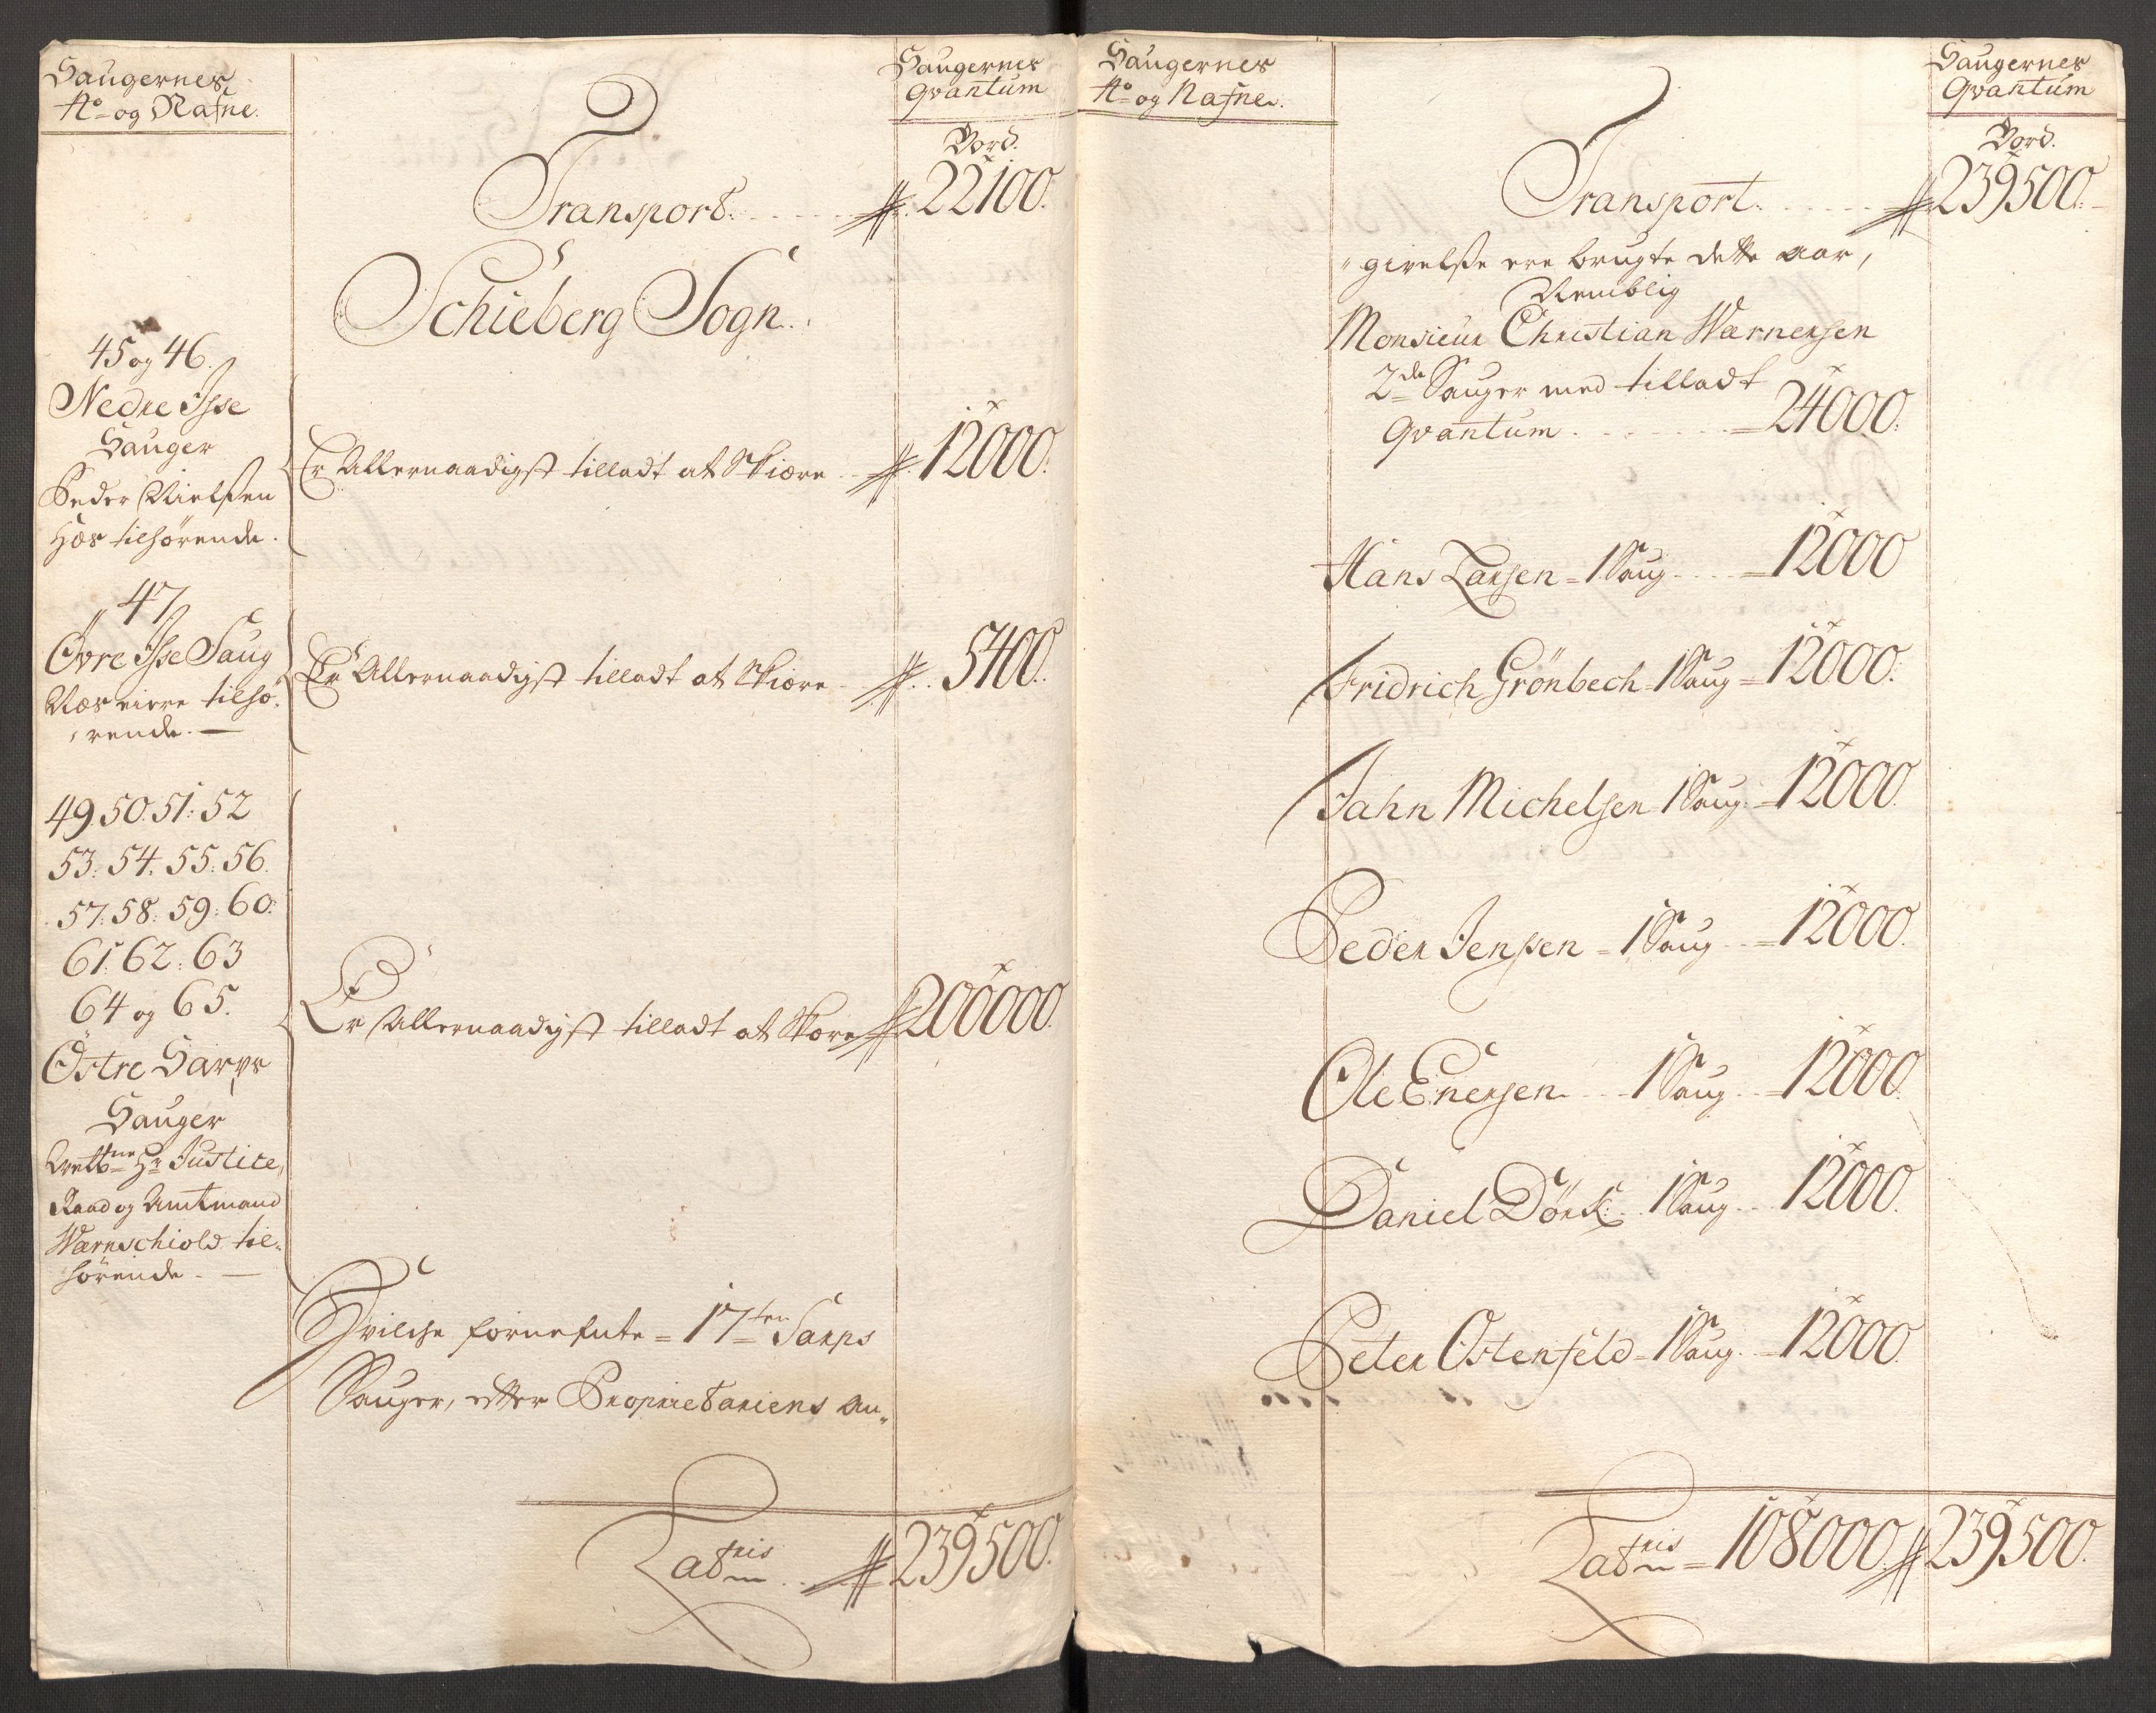 Saugernes
No og Nafne.
Saugernes
Qvantum
Bord.
Transport. # 22100.
Schieberg Sogn.
45 og 46.
Nedre Isse
Sauger
Peder Nielsen
Høs tilhørende.
Er Allernaadigst tilladt at Skiære # 12000.
47
Øvre Isse Saug
Næs eiere tilhø-
rende.
Er Allernaadigst tilladt at Skiære # 5400.
49. 50. 51. 52
53. 54. 55. 56.
57. 58. 59. 60.
61. 62. 63
64 og 65.
Østre Sarps
Sauger
Hr Justice
Raad og Amtmand
Wærnschiold til-
hørende.
Er Allernaadigst tilladt at Skære # 200000.
Hvilche fornefnte 17ten Sarps
Sauger, efter Proprietariens an-
Lateris # 239500.
Saugernes
No og Nafne.
Saugernes
Qvantum
Bord.
Transport. # 239500.
givelse ere brugte dette aar,
Nemblig
Monsieur Christian Warnersen
2de Sauger med tilladt
Qvantum = 24000.
Hans Larsen = 1 Saug = 12000
Fridrich Grönbech = 1 Saug = 12000.
Jahn Michelsen 1 Saug = 12000.
Peder Jensen = 1 Saug = 12000.
Ole Enersen 1 Saug = 12000.
Daniel Dörk 1 Saug 12000.
Peter Ostenfeld = 1 Saug = 12000.
Lateris = 108000. # 239500.